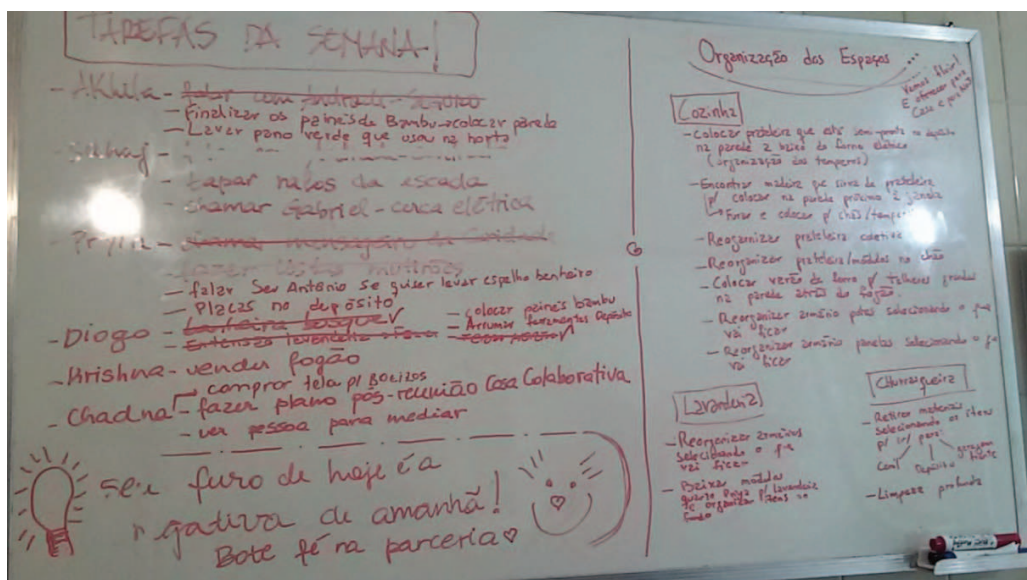 TAREFAS DA SEMANA!
- Akhila - falar com Andrade - Seguro
- Finalizar os painéis de Bambu → colocar parede
- Lavar pano verde que usou na horta
- tapar ralos da escada
- chamar Gabriel - cerca elétrica
- mensagem de
- fazer mutirões
- falar Seu Antônio se quiser levar espelho banheiro
- Placas no depósito
- Diogo - bosque
- colocar painéis bambu
- Arrumar ferramentas Depósito
- Krishna - vender fogão
comprar tela p/
- Chadna - fazer plano pós-reunião Casa Colaborativa
- ver pessoa para mediar
seu furo de hoje é a
negativa de amanhã!
Bote fé na parceria ♡
Organização dos Espaços
Vamos fluir!
E oferecer para
Casa e
Cozinha
- Colocar prateleira que está no depósito
na parede a baixo do forno elétrico
(organização dos temperos)
- Encontrar madeira que sirva de prateleira
p/ colocar na parede próximo à janela
→ Furar e colocar p/ chás/temperos
- Reorganizar prateleira coletiva
- Reorganizar prateleira/módulos no chão
- Colocar varão de ferro p/ talheres grandes
na parede atrás do fogão.
- Reorganizar armário potes selecionando o que
vai ficar
- Reorganizar armário panelas selecionando o que
vai ficar
Lavanderia
- Reorganizar armários
selecionando o que
vai ficar
- Baixar módulos
p/ lavanderia
organizar itens no
fundo
Churrasqueira
- Retirar materiais
selecionando os itens
p/ ir para:
Depósito
- Limpeza profunda